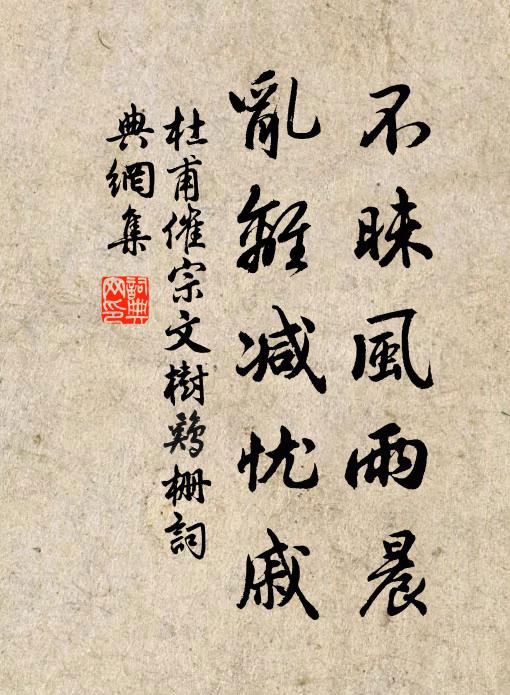 不昧風雨晨
亂離减忧戚
杜甫催宗文樹鷄栅詞
典網集
詞典
网印